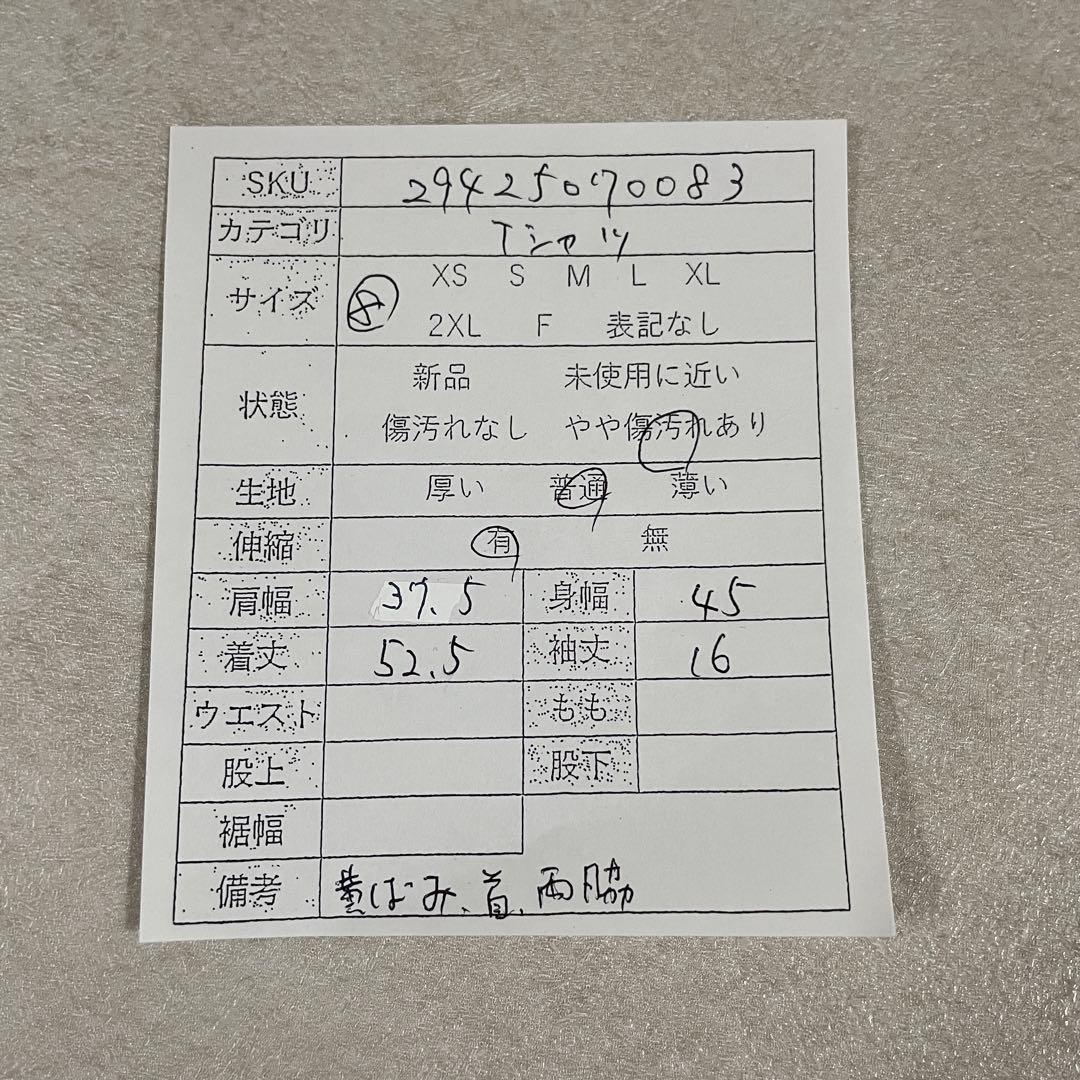 SKU 29425070083
カテゴリ Tシャツ
サイズ 8 XS S M L XL
2XL F 表記なし
状態 新品 未使用に近い
傷汚れなし やや傷汚れあり
生地 厚い 普通 薄い
伸縮 有 無
肩幅 37.5 身幅 45
着丈 52.5 袖丈 16
ウエスト もも
股上 股下
裾幅
備考 黄ばみ、首、両脇